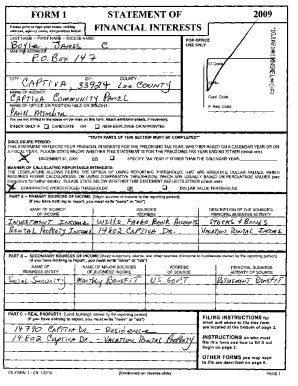 FORM 1 STATEMENT OF 2009
FINANCIAL INTERESTS
Please print or type your name, mailing address, agency name, and position below:
LAST NAME -- FIRST NAME -- MIDDLE NAME:
BOYLE JAMES C
MAILING ADDRESS:
P.O. BOX 147
FOR OFFICE USE ONLY:
ID Code
ID No.
Conf. Code
P. Req. Code
CITY: ZIP: COUNTY:
CAPTIVA, 33924 LEE COUNTY
NAME OF AGENCY:
CAPTIVA COMMUNITY PANEL
NAME OF OFFICE OR POSITION HELD OR SOUGHT:
PANEL MEMBER
You are not limited to the space on the lines on this form. Attach additional sheets, if necessary.
CHECK ONLY IF CANDIDATE OR NEW EMPLOYEE OR APPOINTEE
**BOTH PARTS OF THIS SECTION MUST BE COMPLETED**
DISCLOSURE PERIOD:
THIS STATEMENT REFLECTS YOUR FINANCIAL INTERESTS FOR THE PRECEDING TAX YEAR, WHETHER BASED ON A CALENDAR YEAR OR ON A FISCAL YEAR. PLEASE STATE BELOW WHETHER THIS STATEMENT IS FOR THE PRECEDING TAX YEAR ENDING EITHER (check one):
DECEMBER 31, 2009 OR SPECIFY TAX YEAR IF OTHER THAN THE CALENDAR YEAR:
MANNER OF CALCULATING REPORTABLE INTERESTS:
THE LEGISLATURE ALLOWS FILERS THE OPTION OF USING REPORTING THRESHOLDS THAT ARE ABSOLUTE DOLLAR VALUES, WHICH REQUIRES FEWER CALCULATIONS, OR USING COMPARATIVE THRESHOLDS, WHICH ARE USUALLY BASED ON PERCENTAGE VALUES (see instructions for further details). PLEASE STATE BELOW WHETHER THIS STATEMENT REFLECTS EITHER (check one):
COMPARATIVE (PERCENTAGE) THRESHOLDS OR DOLLAR VALUE THRESHOLDS
PART A -- PRIMARY SOURCES OF INCOME [Major sources of income to the reporting person]
(If you have nothing to report, you must write "none" or "n/a")
NAME OF SOURCE OF INCOME SOURCE'S ADDRESS DESCRIPTION OF THE SOURCE'S PRINCIPAL BUSINESS ACTIVITY
INVESTMENT INCOME WELLS FARGO BANK ACCOUNTS STOCKS & BONDS
RENTAL PROPERTY INCOME 14802 CAPTIVA DR. VACATION RENTAL INCOME
PART B -- SECONDARY SOURCES OF INCOME [Major customers, clients, and other sources of income to businesses owned by the reporting person]
(If you have nothing to report, you must write "none" or "n/a")
NAME OF BUSINESS ENTITY NAME OF MAJOR SOURCES OF BUSINESS' INCOME ADDRESS OF SOURCE PRINCIPAL BUSINESS ACTIVITY OF SOURCE
SOCIAL SECURITY MONTHLY BENEFIT US GOV'T RETIREMENT BENEFIT
PART C -- REAL PROPERTY [Land, buildings owned by the reporting person]
(If you have nothing to report, you must write "none" or "n/a")
14790 CAPTIVA DR. - RESIDENCE
14802 CAPTIVA DR. - VACATION RENTAL PROPERTY
FILING INSTRUCTIONS for when and where to file this form are located at the bottom of page 2.
INSTRUCTIONS on who must file this form and how to fill it out begin on page 3.
OTHER FORMS you may need to file are described on page 6.
CE FORM 1 (Continued on reverse side) PAGE 1